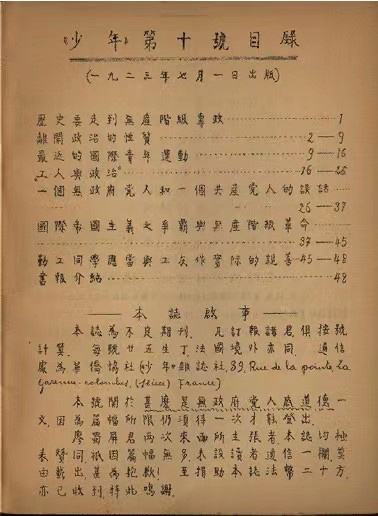 《少年》第十號目錄
(一九二三年七月一日出版)
歷史要走到無產階級專政 1
離開政治的性質 2—9
最近的國際青年運動 9—16
"工人與政治" 16—25
一個無政府党人和一個共產党人的談話
26—37
國際帝國主義之爭霸與無產階級革命
37—45
勤工同學應當與工友作實際的親善 45—48
書報介紹 48
——本誌啟事——
本誌為不定期刊.凡訂報諸君俱按號
計算. 每號廿五生丁法國境外亦同. 通信
處為華僑協社《少年》雜誌社.39.Rue de la pointe, La
Garenne-colombes, (Seine) France)
本號關於甚麼是無政府党人底道德一
文,因為篇幅所限仍須待一次才能登出.
廖 屏君兩次來函所主張者本誌均極
表贊同.祇因篇幅無多,未設讀者通信一欄莫
由載出.甚為抱歉!至捐助本誌法幣二十方,
亦已收到特此鳴謝.